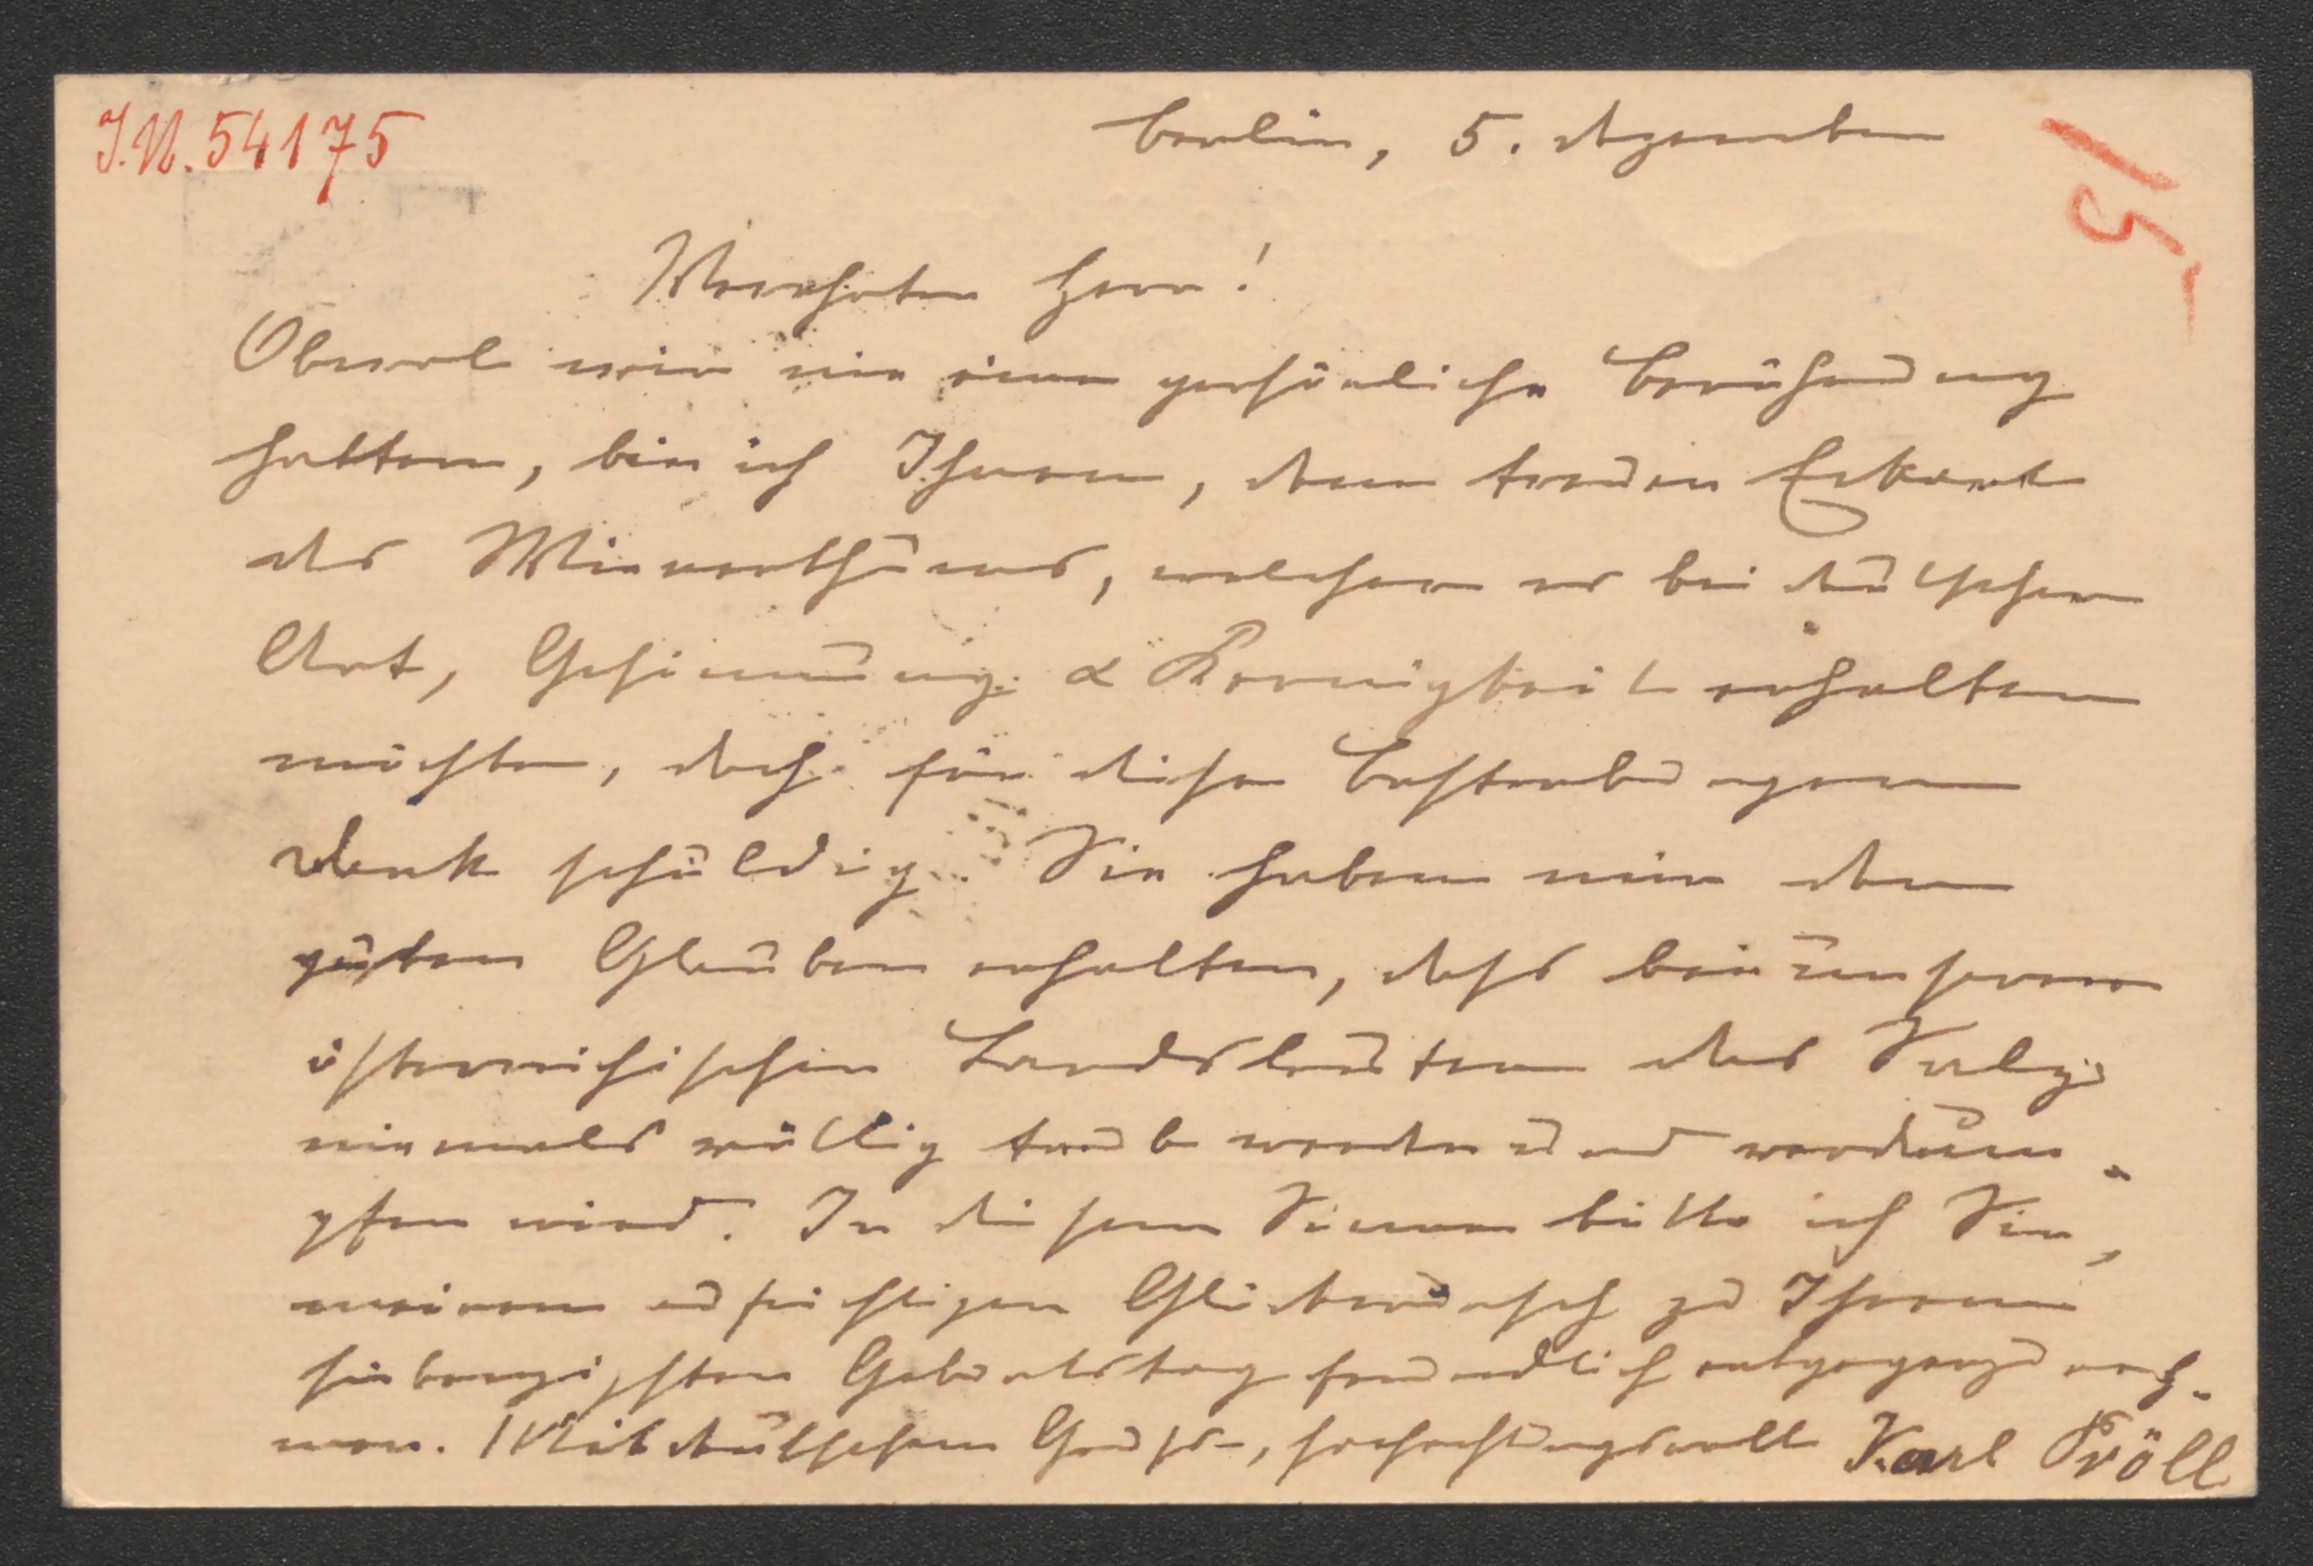 J.N. 54175
Berlin, 5. Dezember
15
Verehrter Herr!
Obwol wir nie eine persönliche Berührung
hatten, bin ich Ihnen, dem treuen Eckart
des Wienerthums, welcher es bei deutscher
Art, Gesinnung & Kernigkeit erhalten
möchte, doch für diese Bestrebungen
Dank schuldig. Sie haben mir den
guten Glauben erhalten, dass bei unseren
österreichischen Landsleuten das Salz
niemals völlig taub werden und verdum-
pfen wird. In diesem Sinne bitte ich Sie,
meinen aufrichtigen Glückwunsch zu Ihrem
siebenzigsten Geburtstag freundlich entgegenzuneh-
men. Mit deutschem Gruss, hochachtungsvoll Karl Pröll